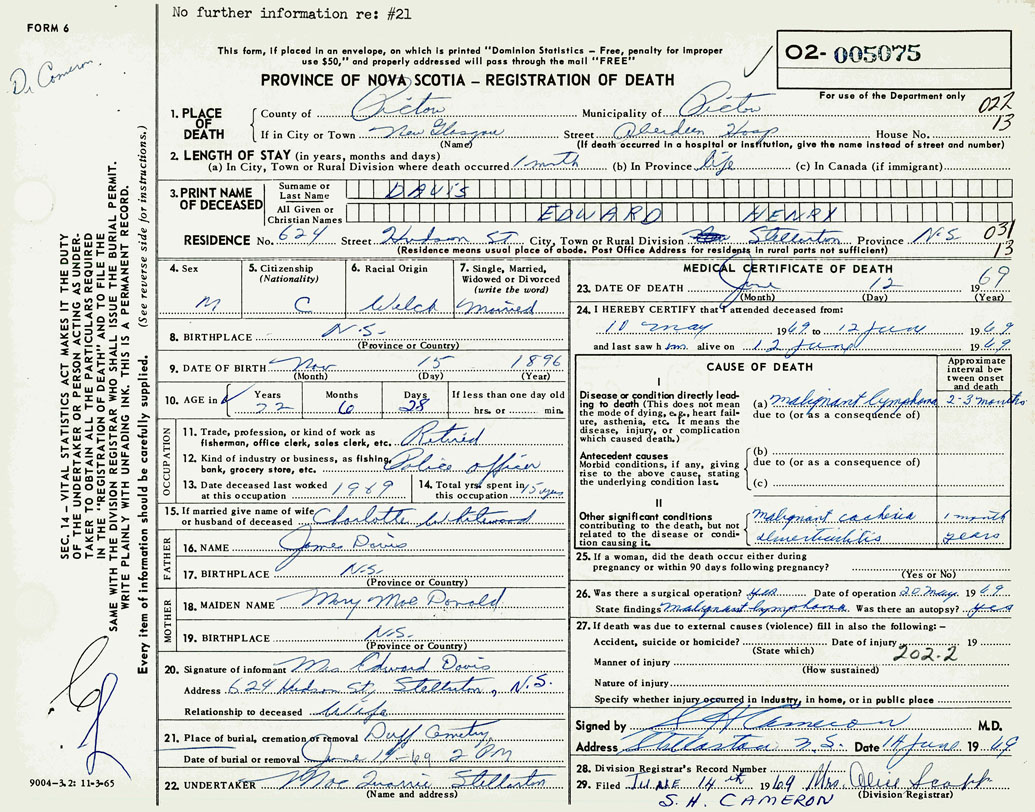 No further information re: #21
FORM 6
Dr Cameron.
This form, if placed in an envelope, on which is printed "Dominion Statistics – Free, penalty for improper
use $50," and properly addressed will pass through the mail "FREE"
O2- 005075
PROVINCE OF NOVA SCOTIA – REGISTRATION OF DEATH
For use of the Department only
022
13
1. PLACE OF DEATH
County of Pictou Municipality of Pictou
If in City or Town New Glasgow Street Aberdeen Hosp House No.
(Name) (If death occurred in a hospital or institution, give the name instead of street and number)
2. LENGTH OF STAY (in years, months and days)
(a) In City, Town or Rural Division where death occurred 1 month (b) In Province life (c) In Canada (if immigrant)
3. PRINT NAME OF DECEASED
Surname or Last Name DAVIS
All Given or Christian Names EDWARD HENRY
RESIDENCE No. 624 Street Hudson ST. City, Town or Rural Division Stellarton Province N.S.
031
13
(Residence means usual place of abode. Post Office Address for residents in rural parts not sufficient)
4. Sex M
5. Citizenship (Nationality) C
6. Racial Origin Welch
7. Single, Married, Widowed or Divorced (write the word) Married
8. BIRTHPLACE N.S.
(Province or Country)
9. DATE OF BIRTH Nov 15 1896
(Month) (Day) (Year)
10. AGE in Years 72 Months 6 Days 28 If less than one day old
hrs. or min.
OCCUPATION
11. Trade, profession, or kind of work as
fisherman, office clerk, sales clerk, etc. Retired
12. Kind of industry or business, as fishing,
bank, grocery store, etc. Police officer
13. Date deceased last worked
at this occupation 1969
14. Total yrs. spent in
this occupation 15 years
15. If married give name of wife
or husband of deceased Charlotte Whitewood
FATHER
16. NAME James Davis
17. BIRTHPLACE N.S.
(Province or Country)
MOTHER
18. MAIDEN NAME Mary MacDonald
19. BIRTHPLACE N.S.
(Province or Country)
20. Signature of informant Mrs Edward Davis
Address 624 Hudson St, Stellarton, N.S.
Relationship to deceased Wife
21. Place of burial, cremation or removal Duff Cemetery
Date of burial or removal June 14-69 2 PM
22. UNDERTAKER Stellarton
(Name and address)
MEDICAL CERTIFICATE OF DEATH
23. DATE OF DEATH June 12 1969
(Month) (Day) (Year)
24. I HEREBY CERTIFY that I attended deceased from:
10 May 1969 to 12 June 1969
and last saw him alive on 12 June 1969.
CAUSE OF DEATH
Approximate interval between onset and death
I
Disease or condition directly leading to death (This does not mean the mode of dying, e.g., heart failure, asthenia, etc. It means the disease, injury, or complication which caused death.)
(a) Malignant lymphoma 2-3 months
due to (or as a consequence of)
Antecedent causes
Morbid conditions, if any, giving rise to the above cause, stating the underlying condition last.
(b)
due to (or as a consequence of)
(c)
II
Other significant conditions contributing to the death, but not related to the disease or condition causing it.
malignant cachexia 1 month
diverticulitis years
25. If a woman, did the death occur either during
pregnancy or within 90 days following pregnancy?
(Yes or No)
26. Was there a surgical operation? yes Date of operation 20 May 1969
State findings Malignant lymphoma Was there an autopsy? yes
27. If death was due to external causes (violence) fill in also the following:–
Accident, suicide or homicide? Date of injury 19
(State which) 202.2
Manner of injury
(How sustained)
Nature of injury
Specify whether injury occurred in industry, in home, or in public place
Signed by S H Cameron M.D.
Address Stellarton N.S. Date 14 June 1969
28. Division Registrar's Record Number
29. Filed JUNE 14th 1969 Mrs. Alice
(Division Registrar)
S. H. CAMERON
SEC. 14 – VITAL STATISTICS ACT MAKES IT THE DUTY
OF THE UNDERTAKER OR PERSON ACTING AS UNDER-
TAKER TO OBTAIN ALL THE PARTICULARS REQUIRED
IN THE "REGISTRATION OF DEATH" AND TO FILE THE
SAME WITH THE DIVISION REGISTRAR WHO SHALL ISSUE THE BURIAL PERMIT.
WRITE PLAINLY WITH UNFADING INK. THIS IS A PERMANENT RECORD.
Every item of information should be carefully supplied. (See reverse side for instructions.)
9004–3.2: 11-3-65